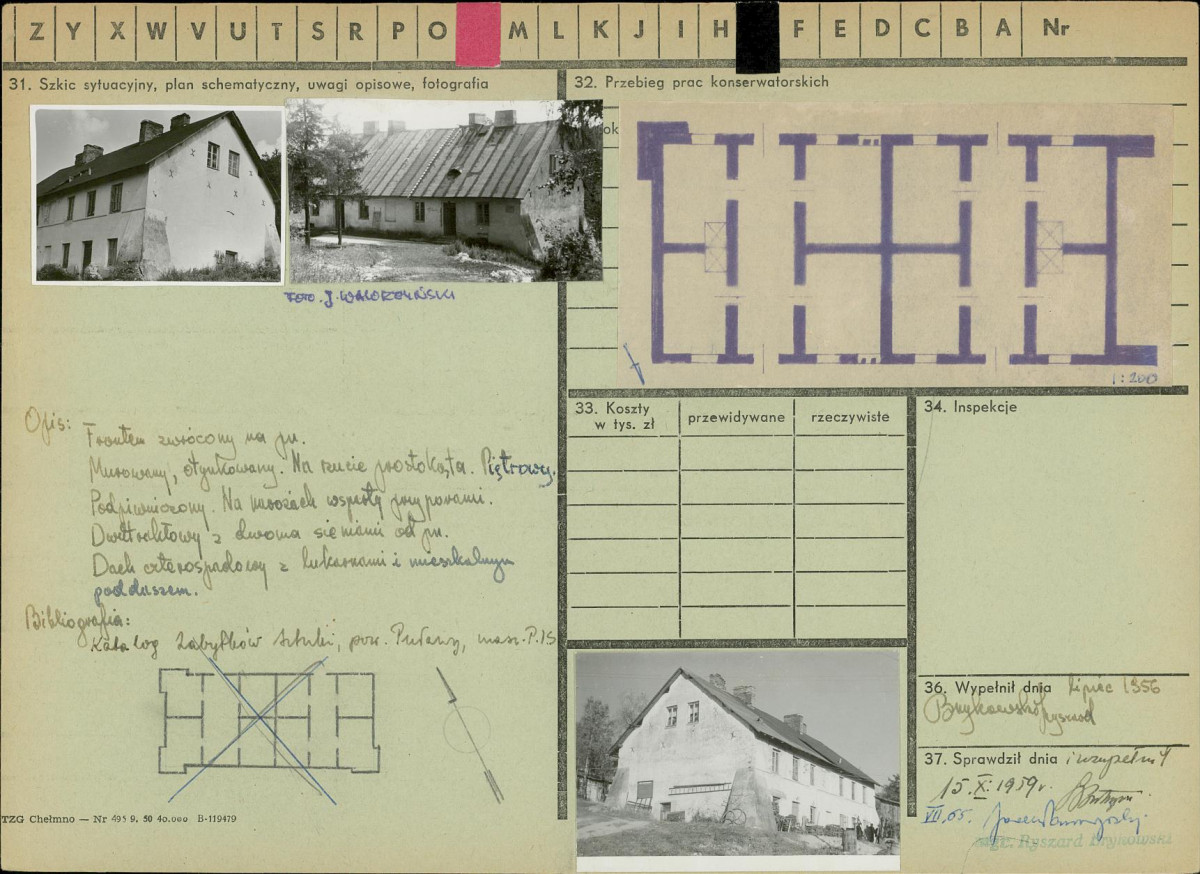 Z Y X W V U T S R P O M L K J I H F E D C B A Nr
31. Szkic sytuacyjny, plan schematyczny, uwagi opisowe, fotografia
32. Przebieg prac konserwatorskich
ok
1:200
FOTO. J.
33. Koszty w tys. zł
przewidywane
rzeczywiste
34. Inspekcje
Opis:
Frontem zwrócony na pn.
Murowany, otynkowany. Na rzucie prostokąta. Piętrowy.
Podpiwniczony. Na narożach wsparty przyporami.
Dwutraktowy z dwoma sieniami od pn.
Dach czterospadowy z lukarnami i mieszkalnym
poddaszem.
Bibliografia:
Katalog Zabytków Sztuki, pow. Puławy, masz. P.I.S
36. Wypełnił dnia lipiec 1956
Brykowski Ryszard
37. Sprawdził dnia i uzupełnił
15.X.1959r.
VII.65.
mgr. Ryszard Brykowski
TZG Chełmno — Nr 495 9. 50 40.000 B-119479